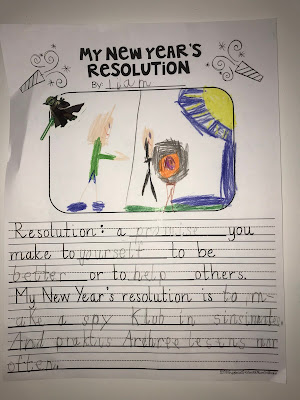 MY NEW YEAR'S
RESOLUTION
By: Liam
Resolution: a promise you
make to yourself to be
better or to help others.
My New Year's resolution is to m-
ake a spy Klub in
And praktus Archree lesins mor
often.